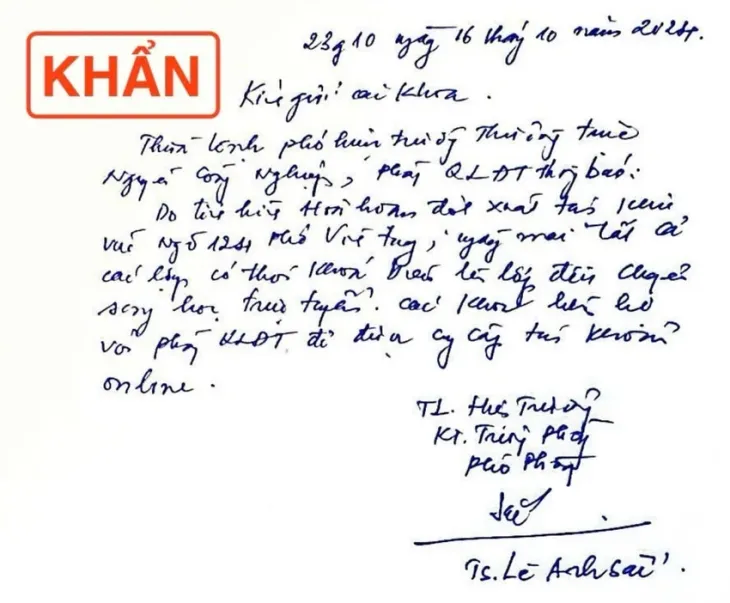 23g10 ngày 16 tháng 10 năm 2024.
KHẨN
Kính gửi: các Khoa.
Thừa lệnh phó hiệu trưởng Thường trực
Nguyễn Công Nghiệp, phòng QLĐT thông báo:
Do tình hình Hoả hoạn đột xuất tại khu
vực Ngõ 124 phố Vĩnh Tuy, ngày mai tất cả
các lớp có thời khoá biểu lên lớp đều chuyển
sang học trực tuyến. Các khoa liên hệ
với phòng QLĐT để được cung cấp tài khoản
online.
TL. Hiệu Trưởng
KT. Trưởng Phòng
Phó Phòng
Ts. Lê Anh